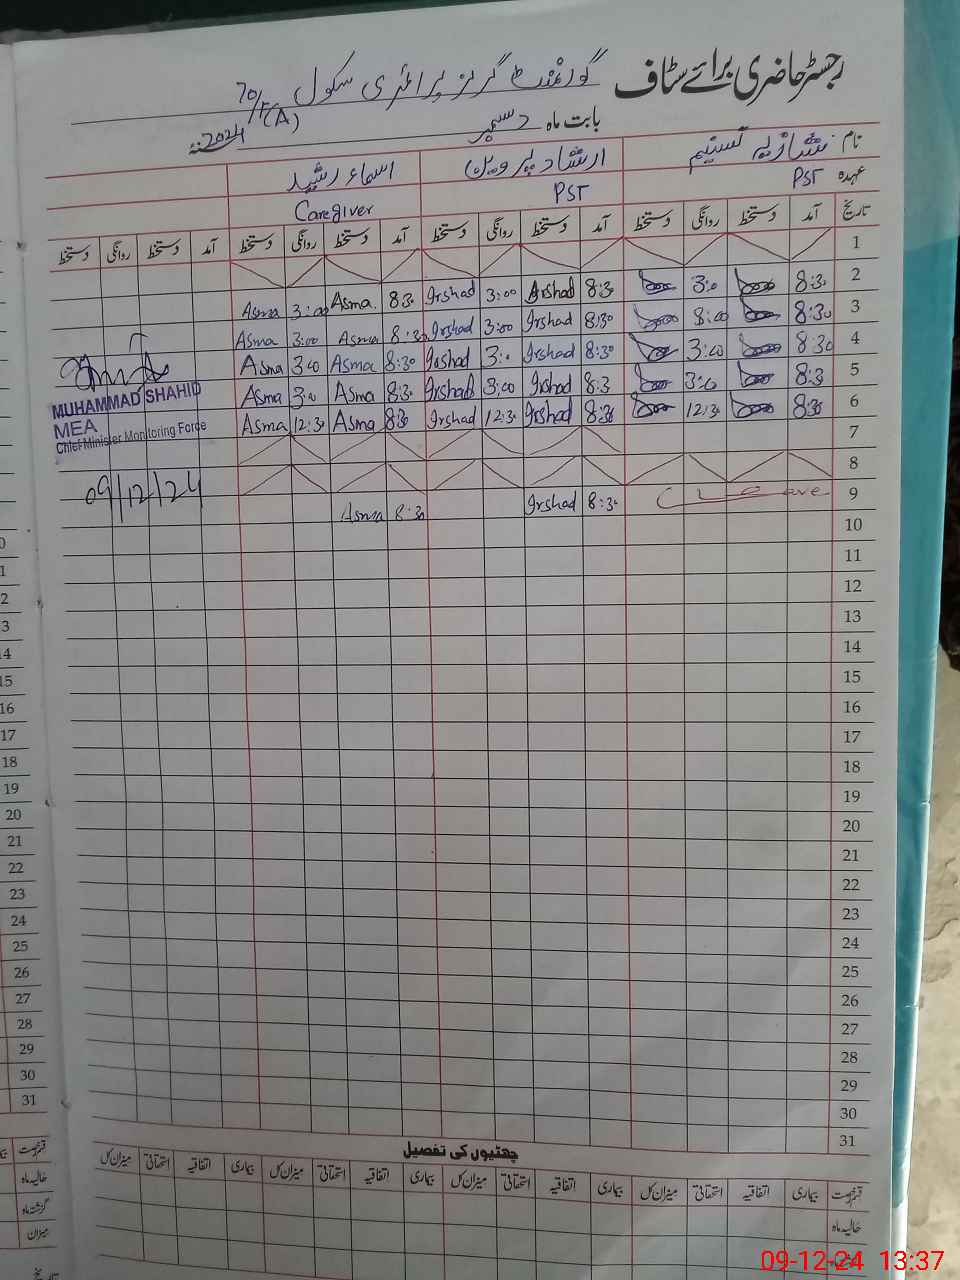 رجسٹر حاضری برائے سٹاف گورنمنٹ گرلز پرائمری سکول 70/ (A)
بابت ماہ دسمبر 2024ء
نام شازیہ تسنیم ارشاد پروین اسماء رشید
عہدہ PST PST Caregiver
تاریخ آمد دستخط روانگی دستخط آمد دستخط روانگی دستخط آمد دستخط روانگی دستخط آمد دستخط روانگی دستخط
1
2 8:30 3:0 8:30 Irshad 3:00 Irshad 8:30 Asma 3:00 Asma
3 8:30 8:00 8:30 Irshad 3:00 Irshad 8:30 Asma 3:00 Asma
4 8:30 3:00 8:30 Irshad 3:0 Irshad 8:30 Asma 3:00 Asma
5 8:3 3:0 8:3 Irshad 3:00 Irshad 8:30 Asma 3:0 Asma
6 8:30 12:30 8:30 Irshad 12:30 Irshad 8:30 Asma 12:30 Asma
MUHAMMAD SHAHID
MEA
Chief Minister Monitoring Force
09/12/24
7
8
9 C Leave 8:30 Irshad 8:30 Asma
10
11
12
13
14
15
16
17
18
19
20
21
22
23
24
25
26
27
28
29
30
31
چھٹیوں کی تفصیل
قسم رخصت بیماری اتفاقیہ استحقاقی میزان کل بیماری اتفاقیہ استحقاقی میزان کل بیماری اتفاقیہ استحقاقی میزان کل بیماری اتفاقیہ استحقاقی میزان کل
حالیہ ماہ
گزشتہ ماہ
میزان
09-12-24 13:37